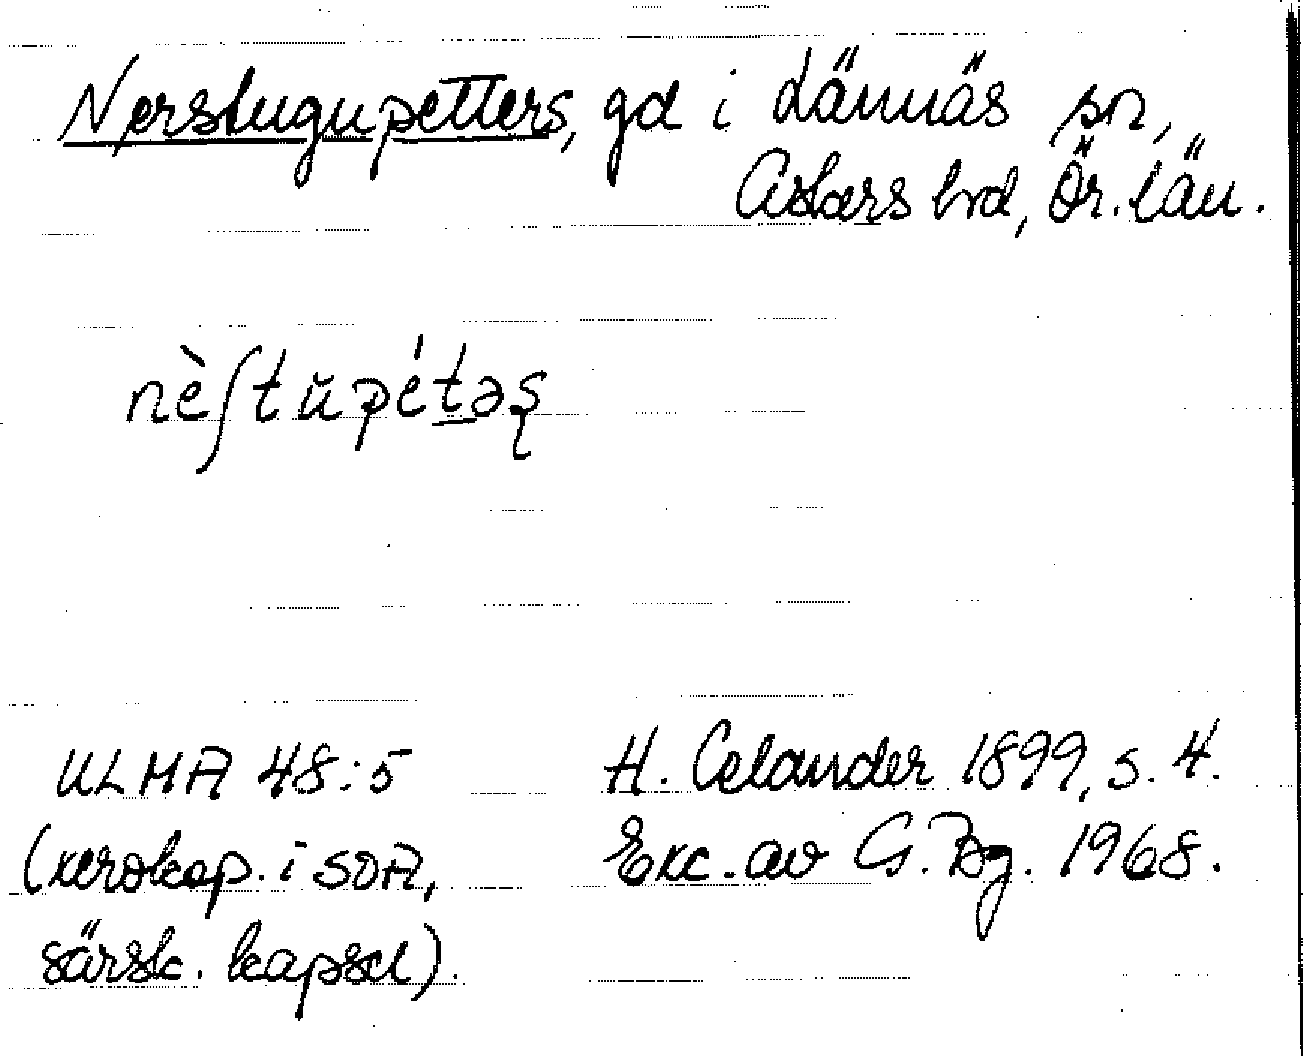 Nerstugupetters, gd i Lännäs sn,
Askers hd, Ör. län.
nè∫tŭpét̠əş
ULMA 48:5
H. Celander 1899, s. 4.
(xerokop. i SOA,
Exc. av G. Bg. 1968.
särsk. kapsel).